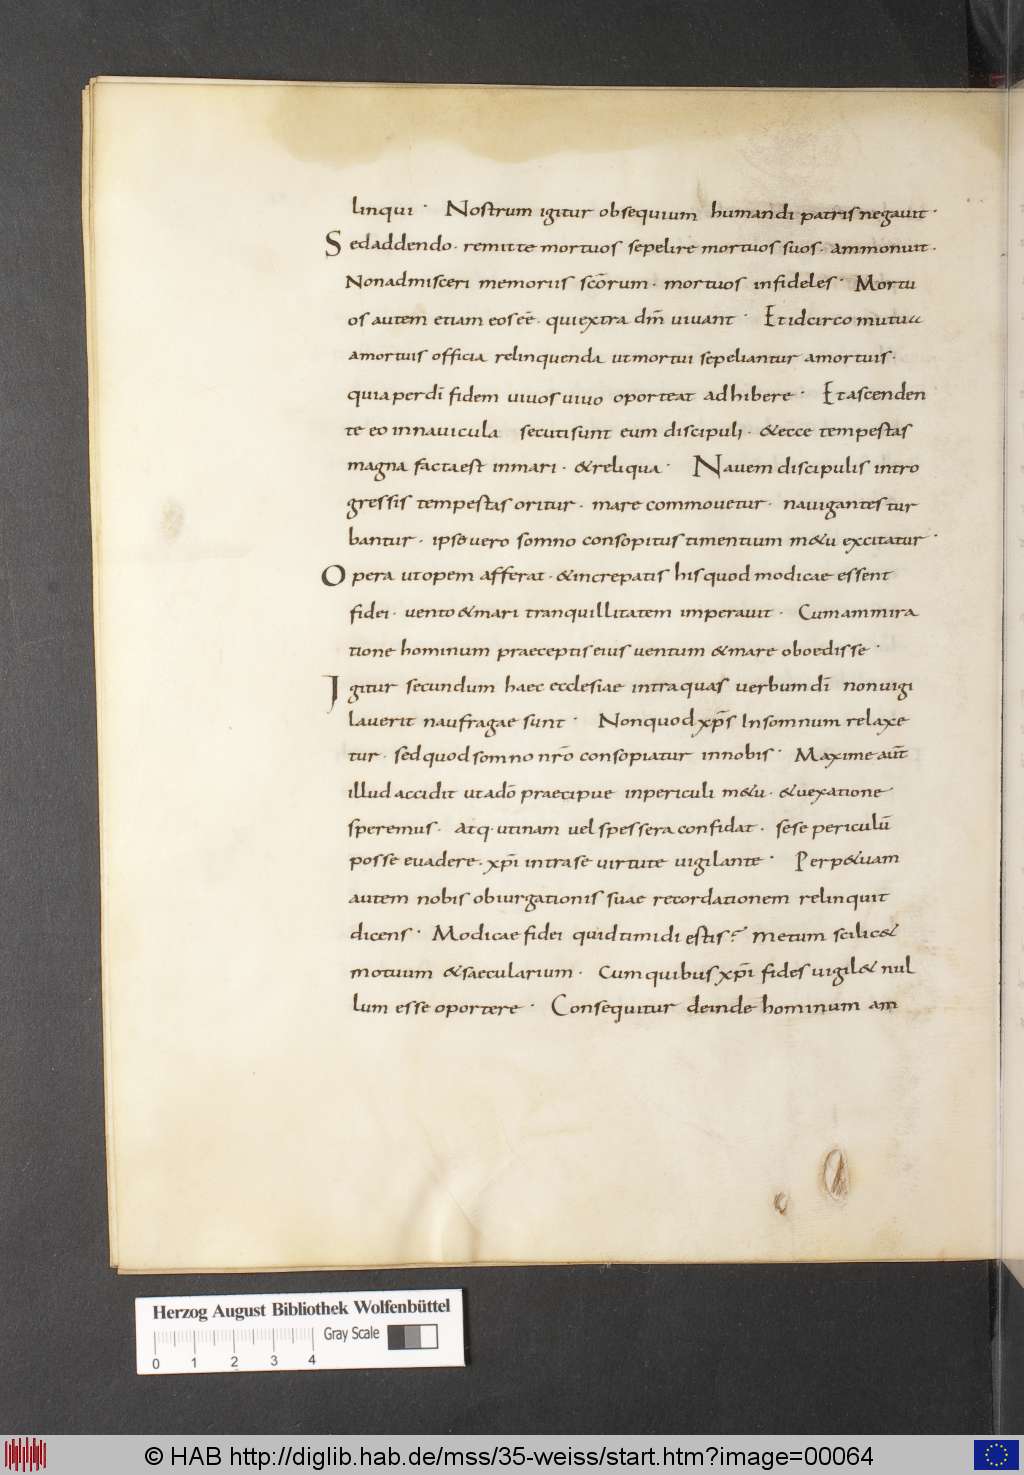 linqui · Nostrum igitur obsequium humandi patris negauit ·
Sed addendo · remitte mortuos sepelire mortuos suos · ammonuit ·
Non admisceri memoriis scōrum · mortuos infideles · Mortu
os autem etiam eos eē · qui extra dm̄ uiuant · Et idcirco mutua
a mortuis officia relinquenda ut mortui sepeliantur a mortuis ·
quia per dī fidem uiuos uiuo oporteat adhibere · Et ascenden
te eo in nauicula secuti sunt eum discipuli · & ecce tempestas
magna facta est in mari · & reliqua · Nauem discipulis intro
gressis tempestas oritur · mare commouetur · nauigantes tur
bantur · ipse uero somno consopitus timentium m&u excitatur ·
Opera ut opem afferat · & increpatis his quod modicae essent
fidei · uento & mari tranquillitatem imperauit · Cum ammira
tione hominum praeceptis eius uentum & mare oboedisse ·
Igitur secundum haec ecclesiae intra quas uerbum dī non uigi
lauerit naufragae sunt · Non quod xp̄s In somnum relaxe
tur · sed quod somno nr̄o consopiatur in nobis · Maxime aut̄
illud accidit ut a dō praecipue in periculi m&u · & uexatione
speremus · Atq· utinam uel spes sera confidat · sese periculū
posse euadere · xp̄i intra se uirtute uigilante · Perp&uam
autem nobis obiurgationis suae recordationem relinquit
dicens · Modicae fidei quid timidi estis? Metum scilic&
motuum & saecularium · Cum quibus xp̄i fides uigil& nul
lum esse oportere · Consequitur deinde hominum am
Herzog August Bibliothek Wolfenbüttel
Gray Scale
0 1 2 3 4
© HAB http://diglib.hab.de/mss/35-weiss/start.htm?image=00064